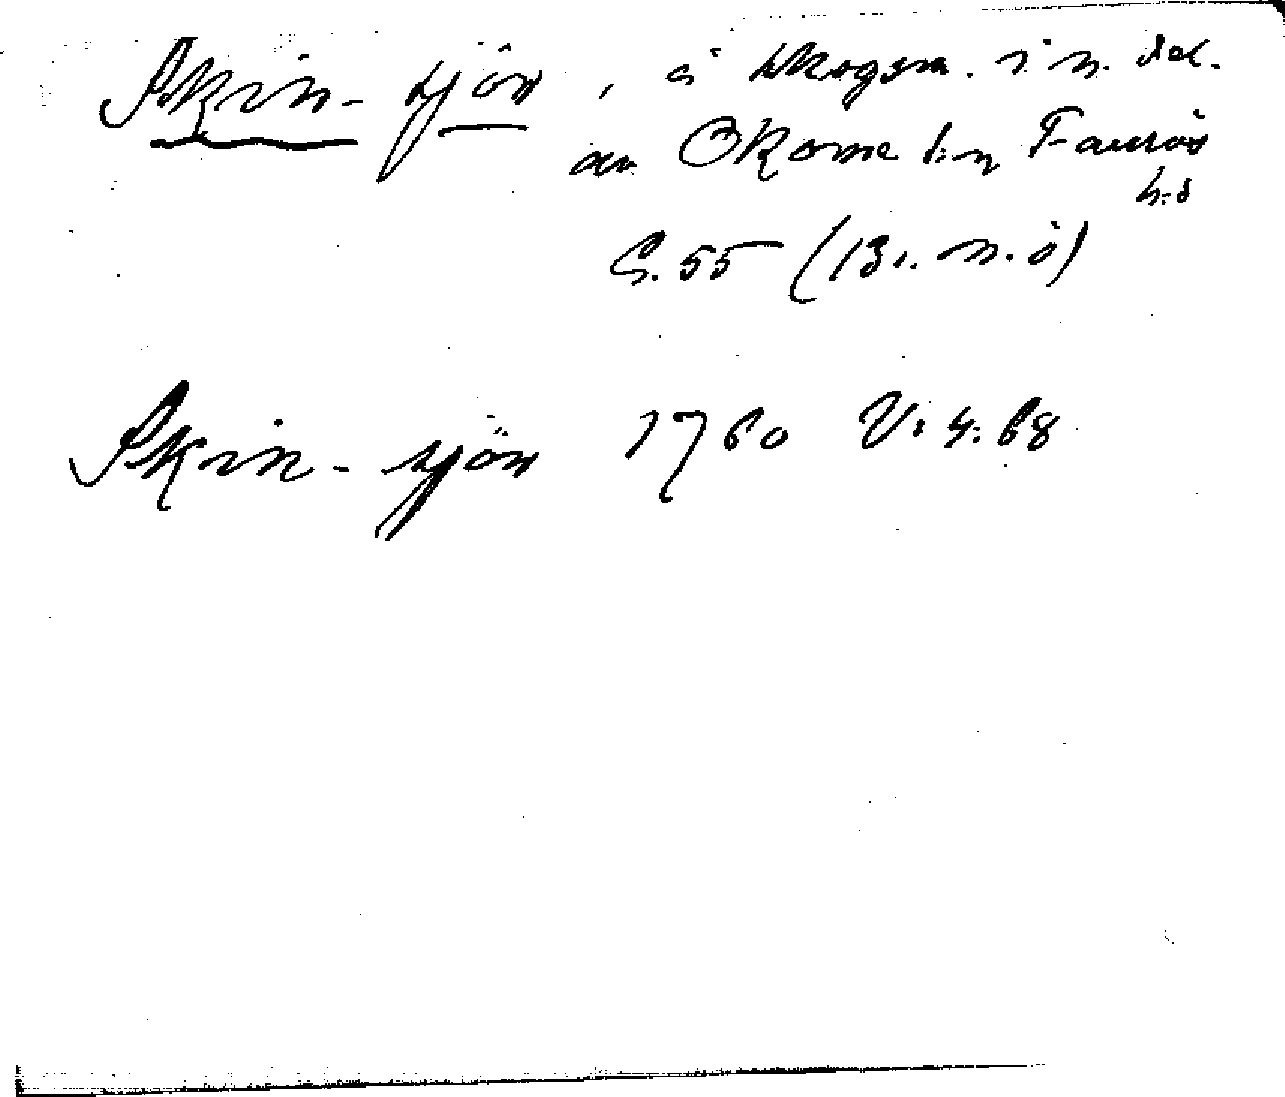 Skin-sjön, å skogsm. i n. del.
av Okome by, Faurås
h:d
G. 55 (Bl. n.ö)
Skin-sjön 1760 V:4:68